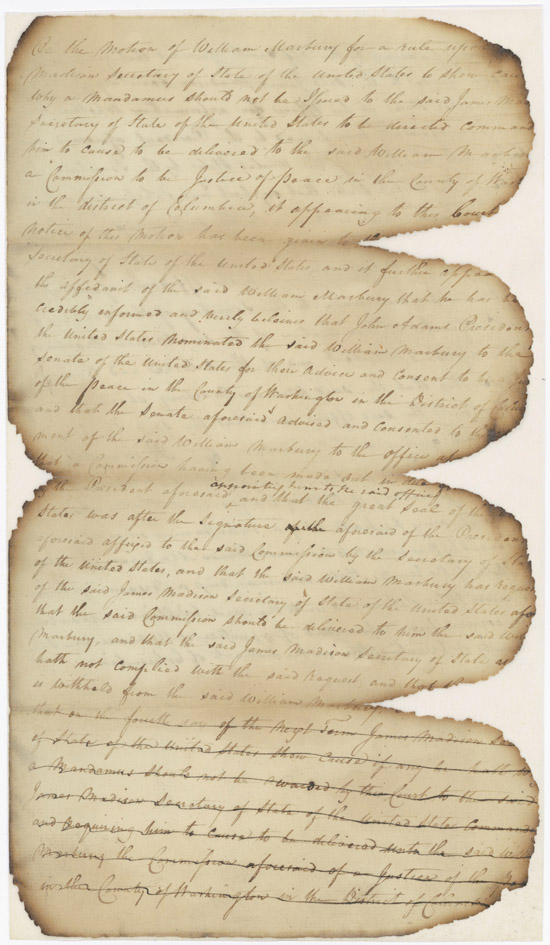 On the Motion of William Marbury for a rule upon
Madison Secretary of State of the United States to show
why a Mandamus should not be Issued to the said James
Secretary of State of the United States to be directed
him to cause to be delivered to the said William
a Commission to be Justice of peace in the County of
in the district of Columbia, it appearing to this Court
notice of this Motion has been given to the
Secretary of State of the United States, and it further
the affidavit of the said William Marbury that he has
credibly informed and verily believes that John Adams
the United States Nominated the said William Marbury to the
Senate of the United States for their Advice and Consent to be
of the peace in the County of Washington in the District of
and that the Senate aforesaid Advised and Consented to the
ment of the said William Marbury to the office
that a Commission having been made out in
appointing him to the said office
of the President aforesaid and that the great Seal of the
States was after the Signature aforesaid of the
aforesaid affixed to the said Commission by the Secretary of
of the United States, and that the said William Marbury has
of the said James Madison Secretary of State of the United States
that the said Commission should be delivered to him the said
Marbury, and that the said James Madison Secretary of State
hath not complied with the said request and that the
is withheld from the said William
that on the fourth day of the Next Term James Madison
of State of the United States Show Cause if any he hath
a Mandamus should not be awarded by this Court to the said
James Madison Secretary of State of the United States
and Requiring him to cause to be delivered unto the said
Marbury the Commission aforesaid of a Justice of the
in the County of Washington in the District of